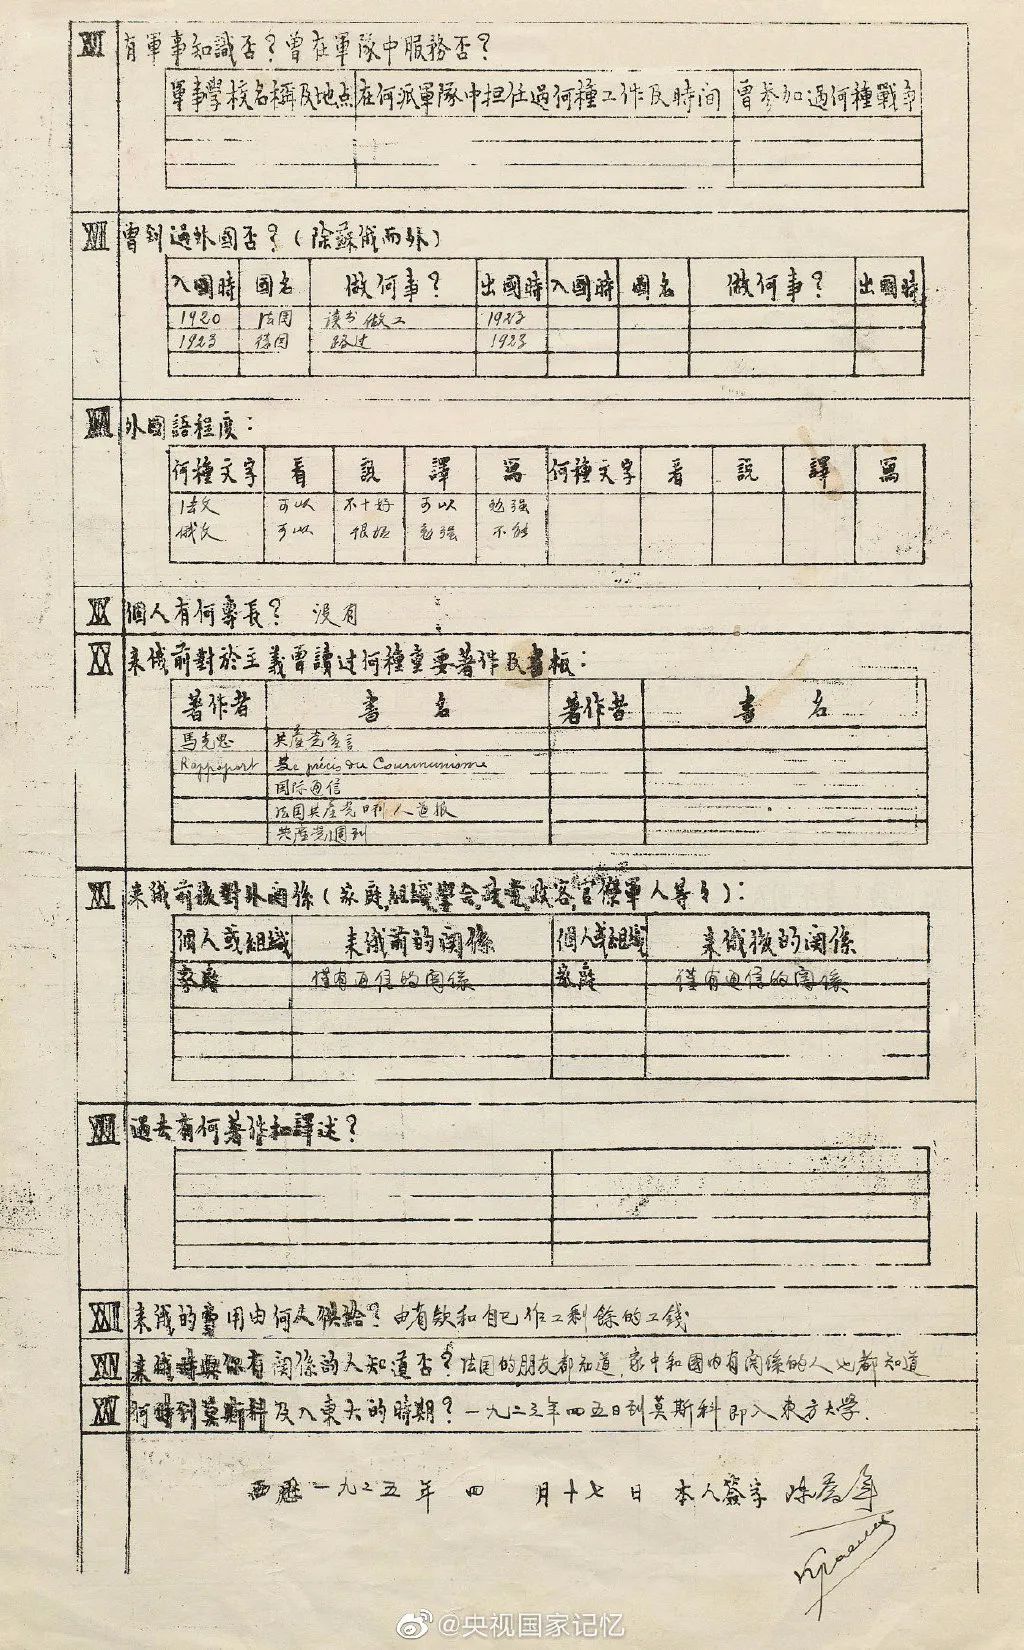 有軍事知識否？曾在軍隊中服務否？
軍事學校名稱及地点 在何派軍隊中担任過何種工作及時間 曾參加過何種戰爭
曾到過外國否？(除蘇俄而外)
入國時 國名 做何事？ 出國時 入國時 國名 做何事？ 出國時
1920 法国 读书做工 1923
1923 德国 路过 1923
外國語程度：
何種文字 看 說 譯 寫 何種文字 看 說 譯 寫
法文 可以 不十好 可以 勉强
俄文 可以 很坏 勉强 不能
XIX 個人有何專長？ 没有
XX 来俄前對於主義曾讀过何種重要著作及書板：
著作者 書名 著作者 書名
馬克思 共產党宣言
Rappoport précis du Communisme
国际通信
法国共產党 人道报
共產党週刊
XXI 来俄前後對外関係(家庭,組織,學会,政党,政客,官僚軍人等々)：
個人或組織 来俄前的関係 個人或組織 来俄後的関係
家庭 僅有通信的関係 家庭 僅有通信的関係
XXII 過去有何著作和譯述？
XXIII 来俄的費用由何人供給？ 由有欵和自己作工剩餘的工錢
XXIV 来俄時與你有関係的人知道否？ 法国的朋友都知道,家中和國内有関係的人也都知道
XXV 何時到莫斯科及入東大的時期？ 一九二三年四五日到莫斯科即入東方大学.
西歷一九二五年 四 月十七日 本人簽字 陈喬年
@央视国家记忆